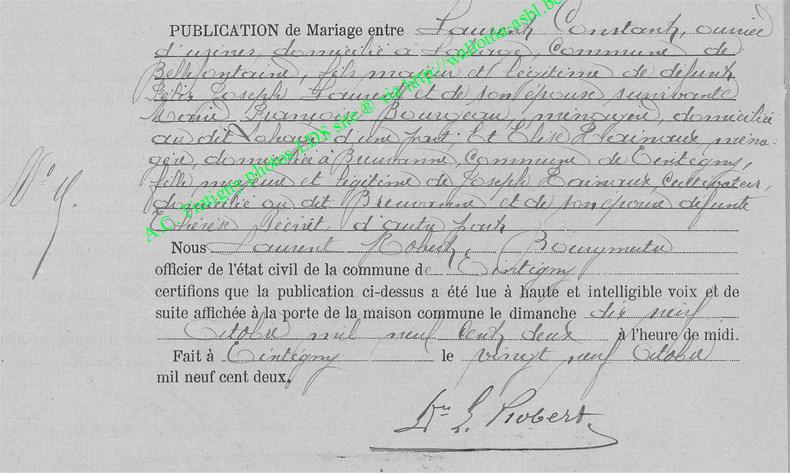 PUBLICATION de Mariage entre Laurent Constant, ouvrier
d'usines, domicilié à Lahage, Commune de
Bellefontaine, fils majeur et légitime de defunt
Félix Joseph Laurent et de son épouse survivante
Marie Françoise Bourgeau, ménagère, domiciliée
au dit Lahage, d'une part; Et Elise Hainaux, ména-
gère, domiciliée à Breuvanne, Commune de Tintigny,
fille majeure et légitime de Joseph Hainaux, Cultivateur,
domicilié au dit Breuvanne et de son épouse défunte
Thérèse, d'autre part
N° 9.
Nous Laurent Robert, Bourgmestre
officier de l'état civil de la commune de Tintigny
certifions que la publication ci-dessus a été lue à haute et intelligible voix et de
suite affichée à la porte de la maison commune le dimanche dix neuf
Octobre mil neuf cent deux à l'heure de midi.
Fait à Tintigny le vingt neuf Octobre
mil neuf cent deux.
Dr L. Robert
A.C. Tintigny photos LDS site ® via http://wallonia-asbl.be